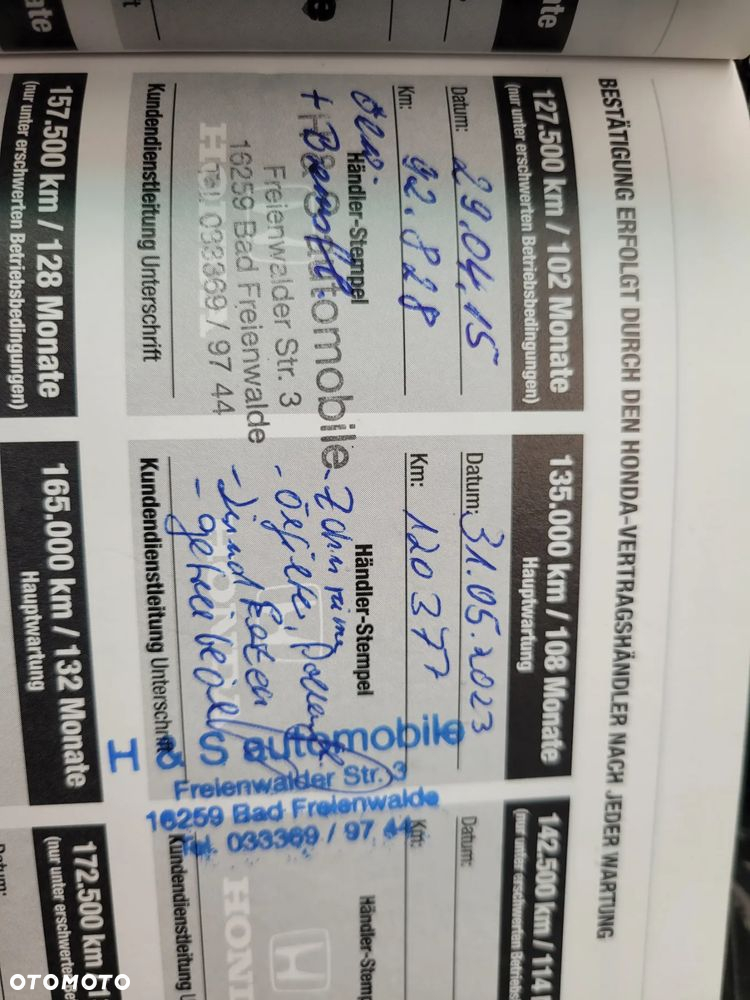 BESTÄTIGUNG ERFOLGT DURCH DEN HONDA-VERTRAGSHÄNDLER NACH JEDER WARTUNG
127.500 km / 102 Monate
(nur unter erschwerten Betriebsbedingungen)
Datum: 29.04.15
Km: 92.828
Händler-Stempel
H & S automobile
Freienwalder Str. 3
16259 Bad Freienwalde
Tel. 033369 / 97 44
Kundendienstleitung Unterschrift
135.000 km / 108 Monate
Hauptwartung
Datum: 31.05.2023
Km: 120377
Händler-Stempel
HONDA
H & S automobile
Freienwalder Str. 3
16259 Bad Freienwalde
Tel. 033369 / 97 44
Kundendienstleitung Unterschrift
142.500 km / 114
(nur unter erschwerten Betriebs
Datum:
Km:
Händler-Stemp
HON
Kundendienstleitung U
157.500 km / 128 Monate
(nur unter erschwerten Betriebsbedingungen)
165.000 km / 132 Monate
Hauptwartung
172.500 km
(nur unter erschwerten Be
Datum:
OTOMOTO